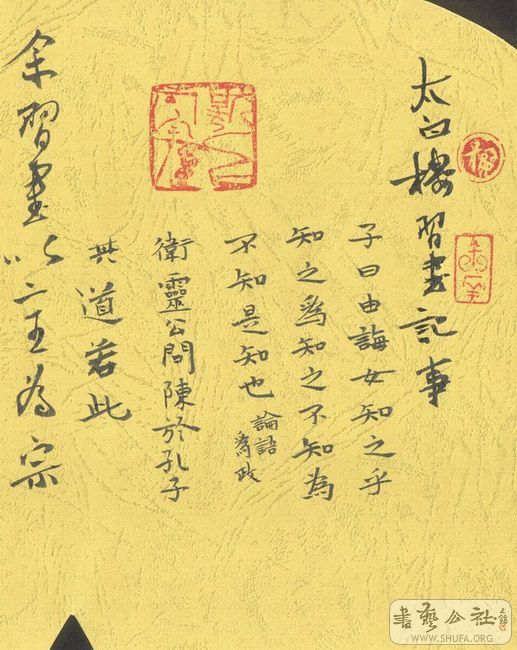 太白楼習書記事
子曰由誨女知之乎
知之為知之不知為
不知是知也
論語
為政
衛靈公問陳於孔子
共道若此
余習書以二王為宗
書藝公社
WWW.SHUFA.ORG